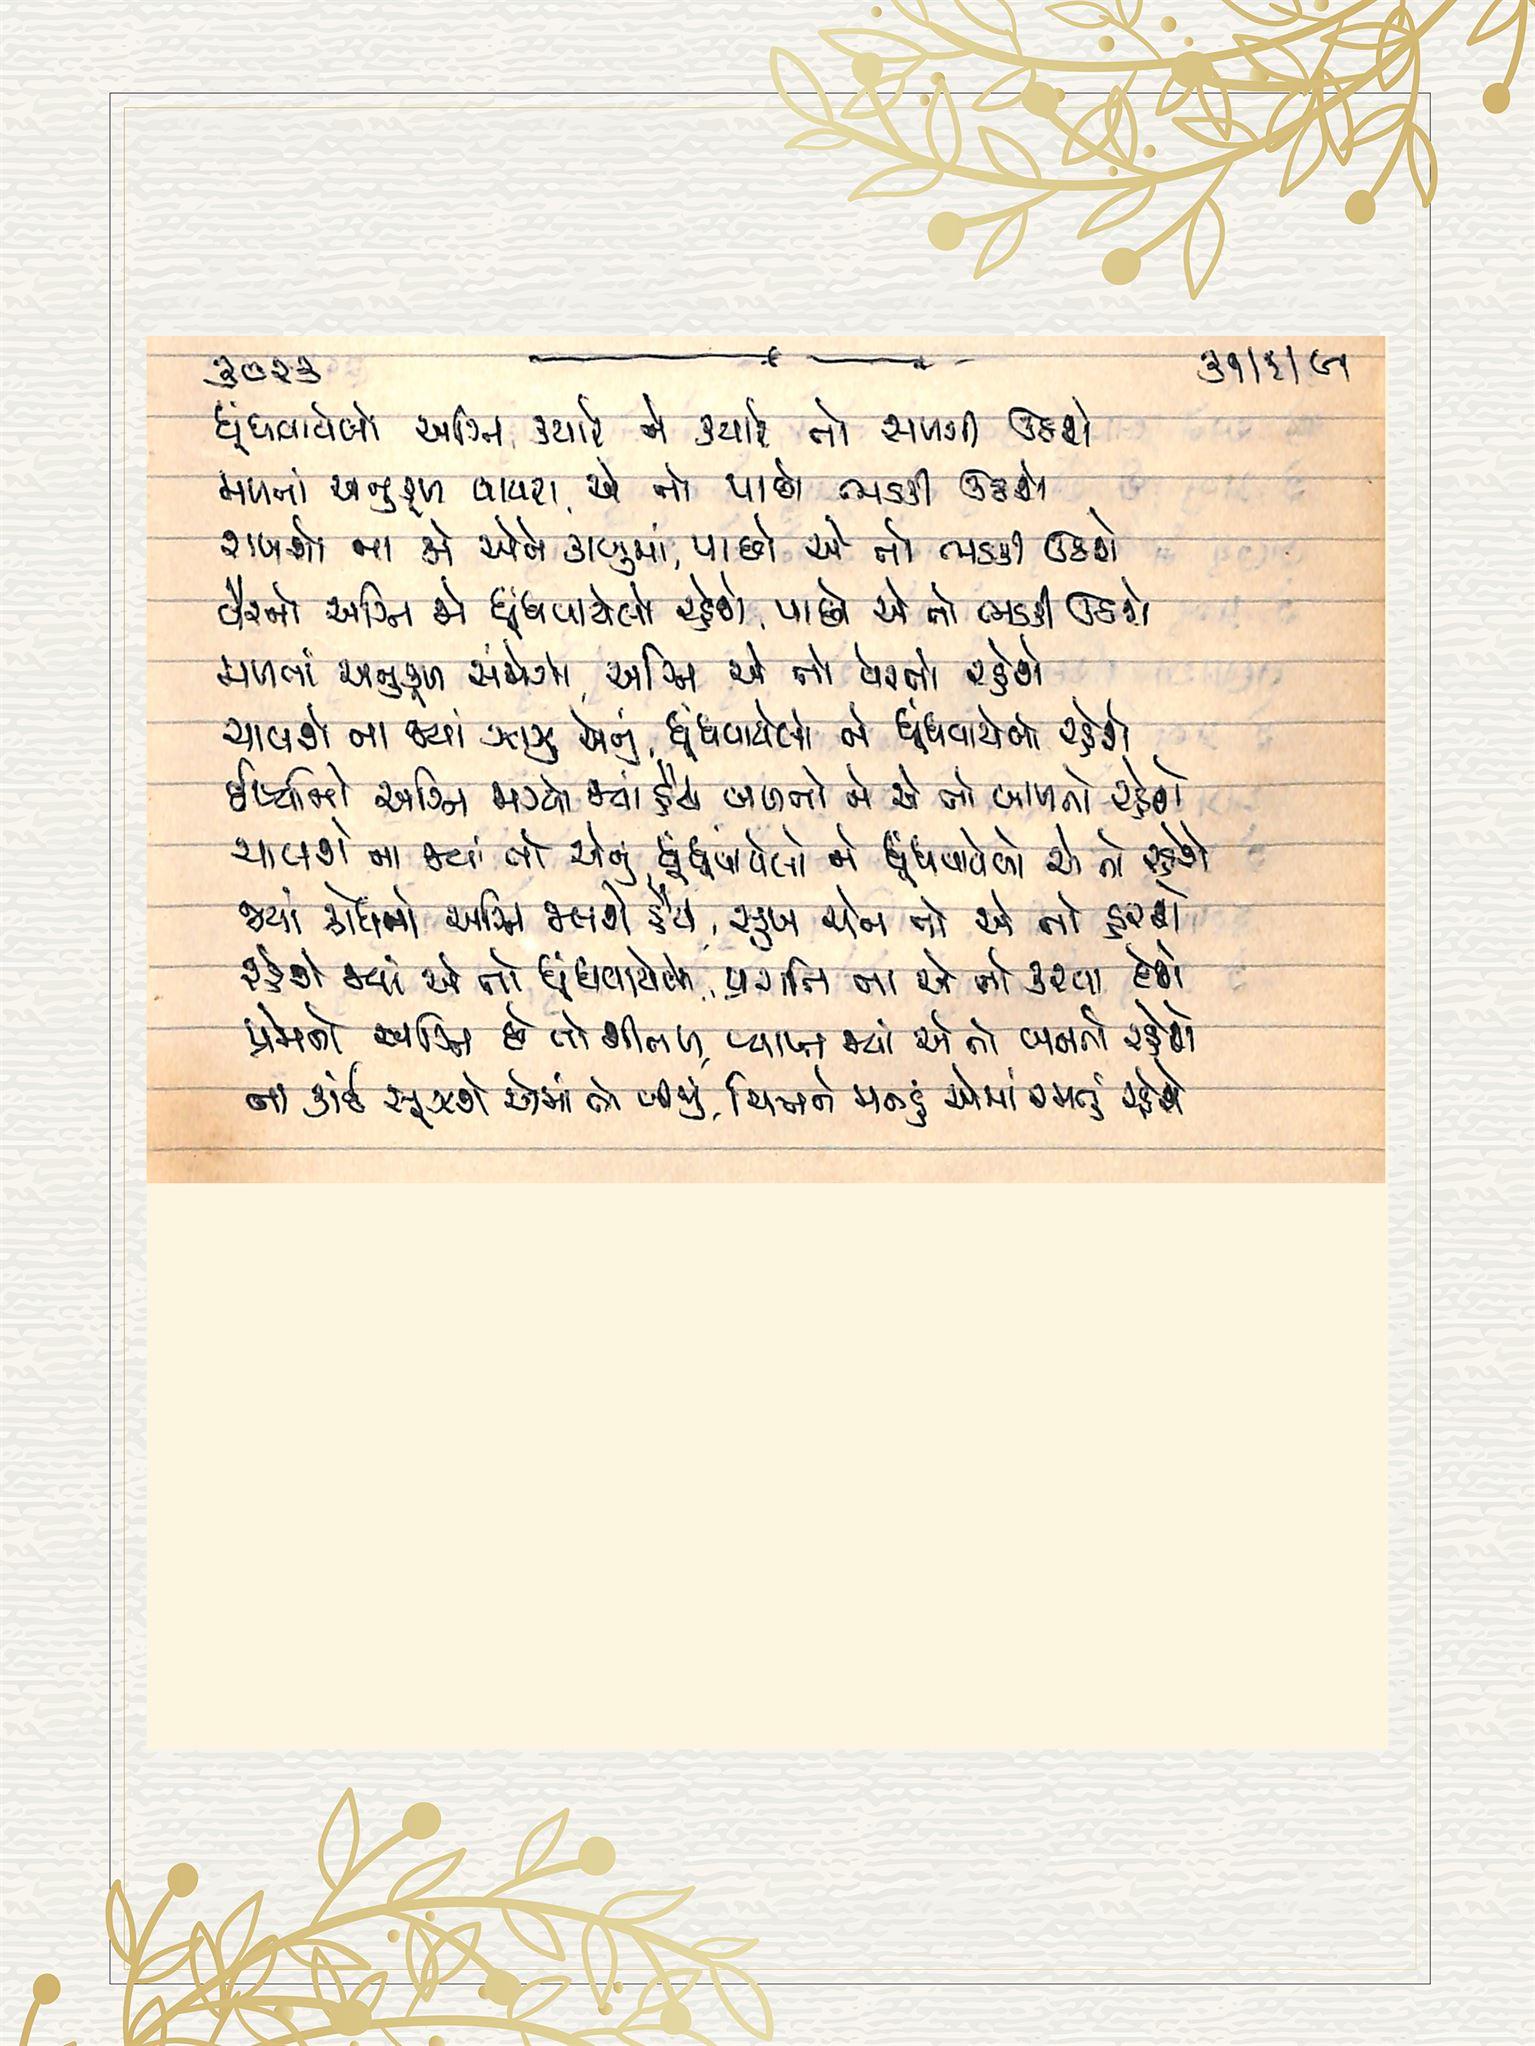 ૩૦૨૩
૩૧/૧/૯૧
ધૂંધવાયેલો અગ્નિ, ક્યારે ને ક્યારે તો સળગી ઊઠશે
મળતાં અનુકૂળ વાયરા, એ તો પાછો ભડકી ઊઠશે
રાખશો ના જો એને કાબુમાં, પાછો એ તો ભડકી ઊઠશે
વૈરનો અગ્નિ જો ધૂંધવાયેલો રહેશે, પાછો એ તો ભડકી ઊઠશે
મળતાં અનુકૂળ સંજોગો, અગ્નિ એ તો વેરતો રહેશે
ચાલશે ના જ્યાં ઝાઝુ એનું, ધૂંધવાયેલો ને ધૂંધવાયેલો રહેશે
ઈર્ષ્યાનો અગ્નિ જાગ્યો જ્યાં હૈયે બળતો ને એ તો બાળતો રહેશે
ચાલશે ના જ્યાં તો એનું, ધૂંધવાયેલો ને ધૂંધવાયેલો એ તો રહેશે
જ્યાં ક્રોધનો અગ્નિ જલશે હૈયે, સુખ ચેન તો એ તો હરશે
રહેશે જ્યાં એ તો ધૂંધવાયેલો, પ્રગતિ ના એ તો કરવા દેશે
પ્રેમનો અગ્નિ છે તો શીતળ, વ્યાપ્ત જ્યાં એ તો બનતો રહેશે
ના કાંઈ સૂઝશે એમાં તો બીજું, ચિત્તને મનડું એમાં રમતું રહેશે